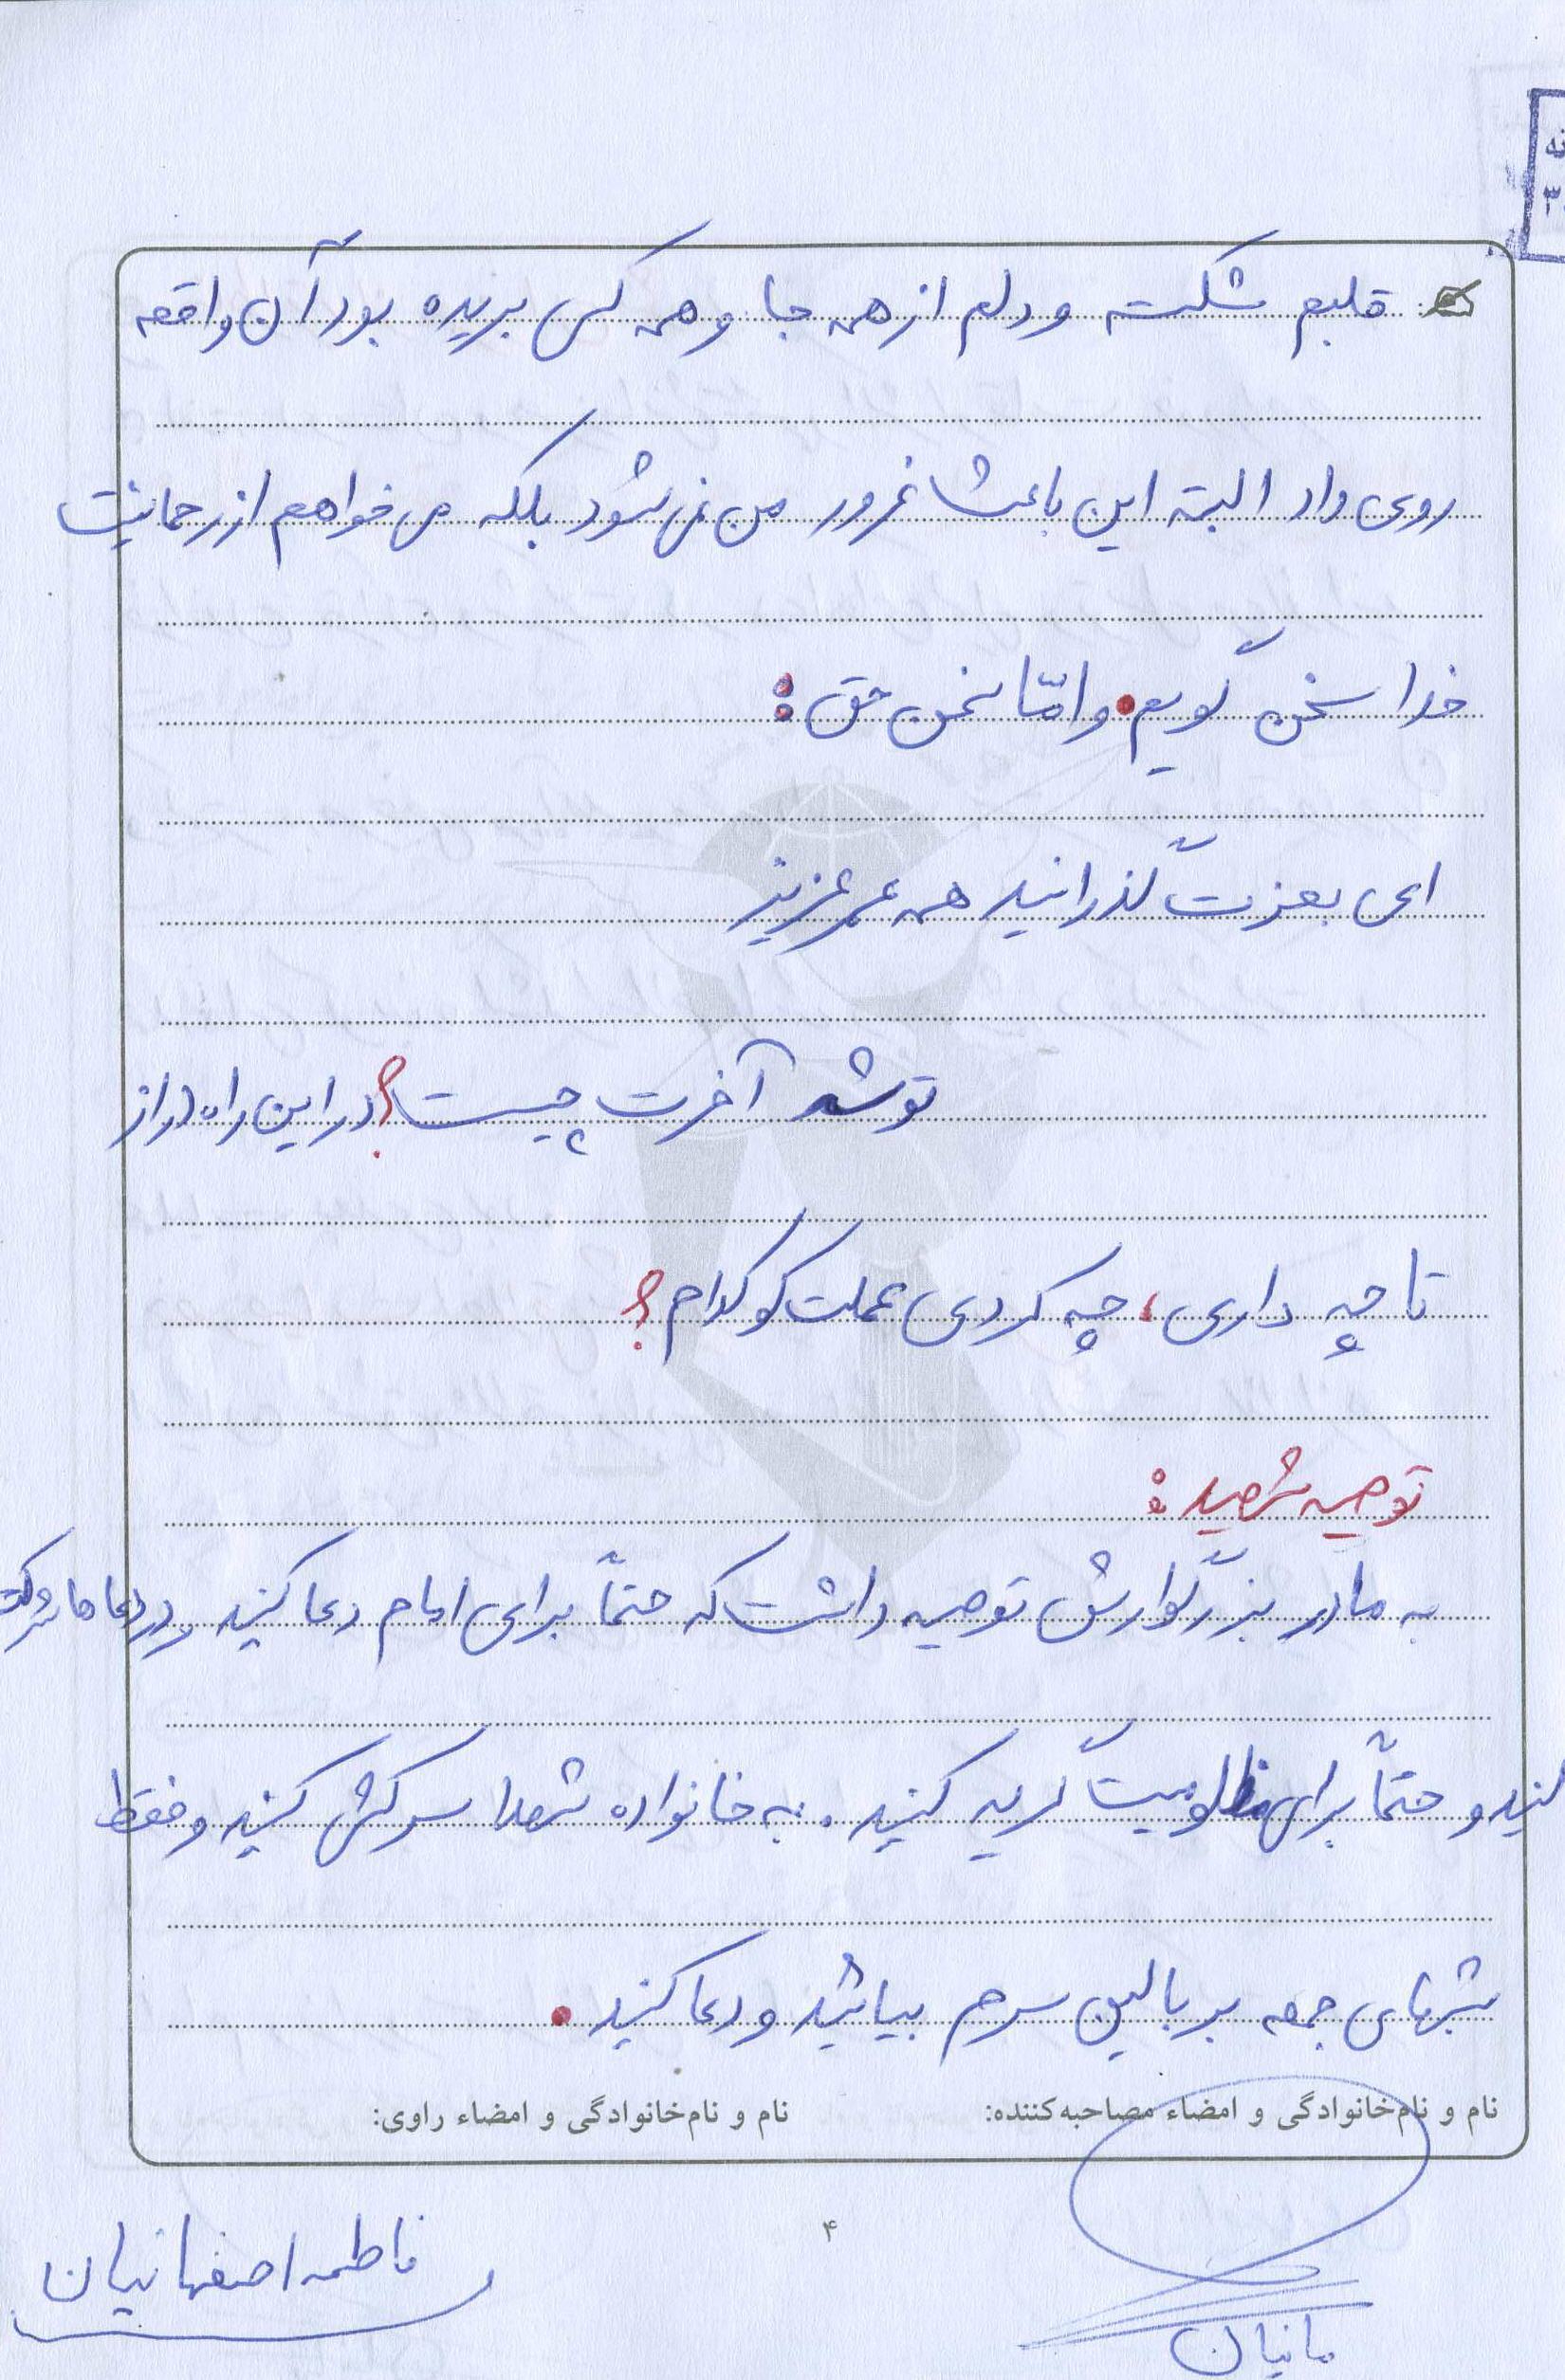 نه
۳
قلبم شکست و دلم از همه جا و همه کس بریده بود آن واقعه
روی داد البته این باعث غرور من نمی شود بلکه می خواهم از رحمانیت
خدا سخن گویم. و امّا سخن حق:
ای بعزت گذرانید همه عمر عزیز
توشه آخرت چیست؟ در این راه دراز
تا چه داری، چه کردی عملت کو کدام؟
توصیه شهید:
به مادر بزرگوارش توصیه داشت که حتماً برای امام دعا کنید و در دعاها شرکت
کنید و حتماً برای مظلومیت گریه کنید. به خانواده شهدا سرکشی کنید و فقط
شبهای جمعه بر بالین سرم بیائید و دعا کنید.
نام و نام‌خانوادگی و امضاء مصاحبه‌کننده: نام و نام‌خانوادگی و امضاء راوی:
۴
فاطمه اصفهانیان
مانیان